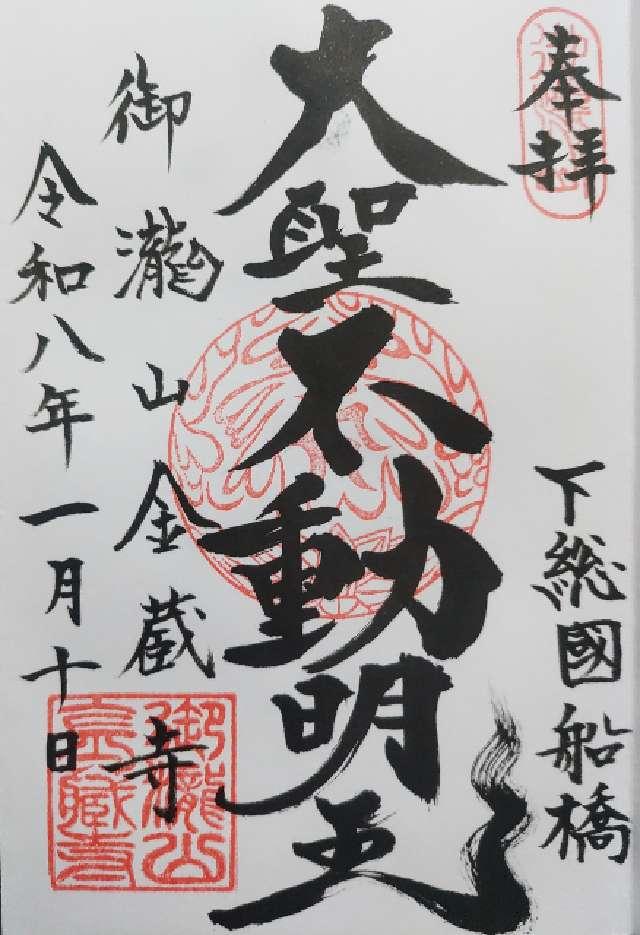 奉拝
下総國船橋
大聖不動明王
御瀧山金蔵寺
令和八年一月十日
御瀧山
金蔵寺